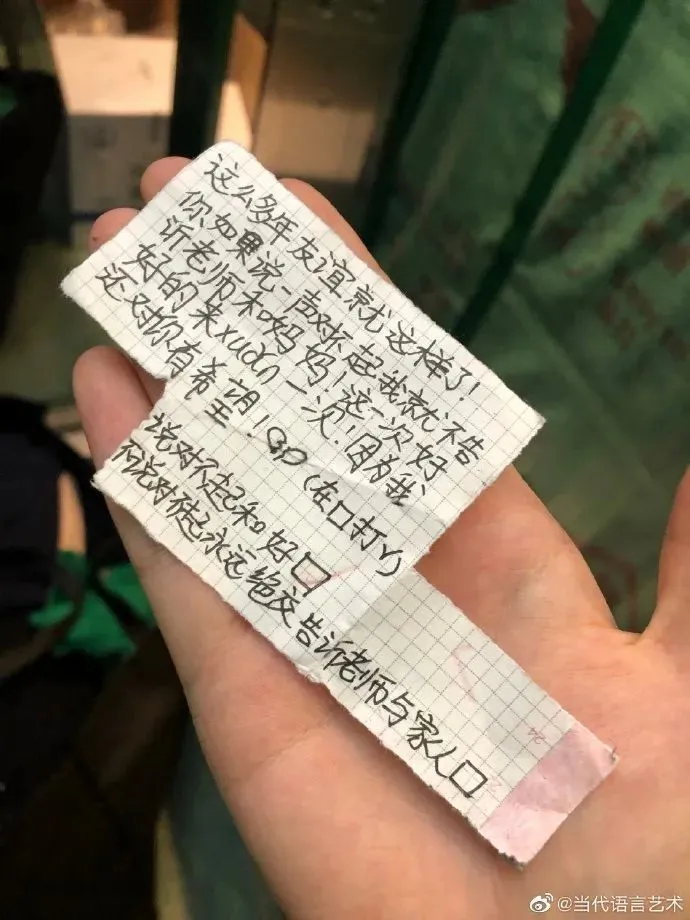 这么多年友谊就这样了！
你如果说一声对不起我就不告
诉老师和妈妈！这一次好
好的来xuǎn一次！因为我
还对你有希望！
(在口打√)
说对不起和好□
不说对不起永远绝交告诉老师与家人□
@当代语言艺术